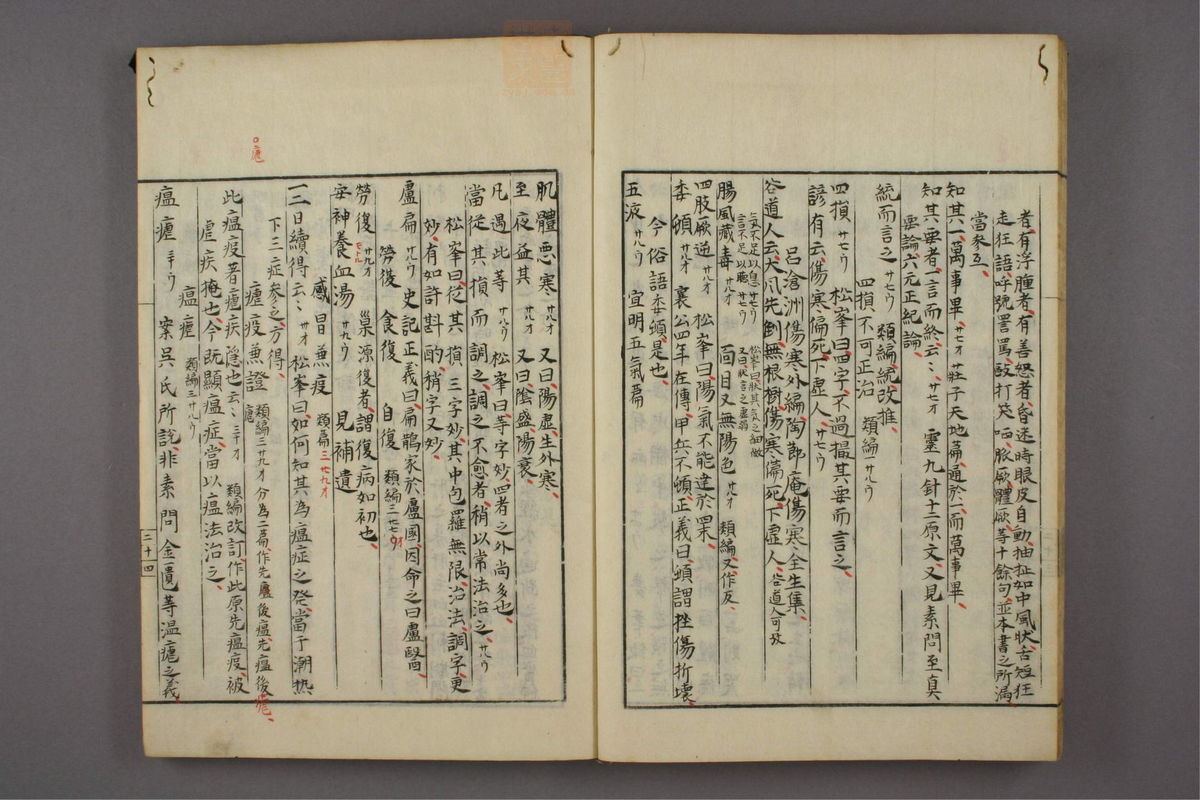 者、有浮腫者、有善怒者、昏迷時眼皮自動、抽扯如中風状、舌短狂
走狂語、呼號詈罵、敺打笑哈、脈厥體厥、等十餘句、並本書之所漏
當參互、
知其一萬事畢、廿七オ 莊子天地篇、通於一而萬事畢
知其要者、一言而終云〻、廿七オ 靈九針十二原文、又見素問至真
要論、六元正紀論、
統而言之 廿七ウ 類編、統改推、
四損不可正治 類編一廿八ウ
四損 廿七ウ 松峯曰、四字、不過撮其要而言之、
諺有云、傷寒偏死下虛人、廿七ウ
呂滄洲傷寒外編、陶節庵傷寒全生集、
谷道人云、大風先倒無根樹、傷寒偏死下虛人、谷道人可攷
氣不足以息 廿七ウ 言不足以聽 廿七ウ 松峯曰、狀其氣之細微 又曰、狀言之虛弱
腸風藏毒 廿八オ 面目又無陽色 廿八オ 類編、又作反、
四肢厥逆 廿八オ 松峯曰、陽氣不能達於四末、
委頓 廿八オ 襄公四年左傳、甲兵不頓、正義曰、頓謂挫傷折壞、
今俗語委頓是也、
五液 廿八ウ 宣明五氣篇
肌體悪寒 廿八オ 又曰、陽虛生外寒、
至夜益甚 廿八オ 又曰、陰盛陽衰、
凡遇此等 廿八ウ 松峯曰、等字妙、四者之外尚多也、
當從其損而調之、調之不愈者、稍以常法治之、廿八ウ
松峯曰、從其損三字妙、其中包羅無限治法、調字更
妙、有如許斟酌、稍字又妙、
盧扁 廿八ウ 史記正義曰、扁鵲家於盧國、因命之曰盧醫、
勞復 食復 自復 類編三廿七オ
勞復 廿九オ 巢源、復者、謂復病如初也、
安神養血湯 廿九ウ 見補遺
感冒兼疫 類編三廿九オ
一二日續得云〻 卅オ 松峯曰、如何知其為瘟症之發、當于潮热
下三症参之、方得、
瘧疫兼證 類編三廿九オ 分為二篇、作先瘧後瘟、先瘟後瘧、
此瘟疫著瘧疾隱也云〻 三十オ 類編改訂作此原先瘟疫、被
瘧疾掩也、今既顯瘟症、當以瘟法治之、
瘟瘧 類編三廿八ウ
瘟瘧 三十ウ 案吳氏所說、非素問金匱等温瘧之義、
二十四